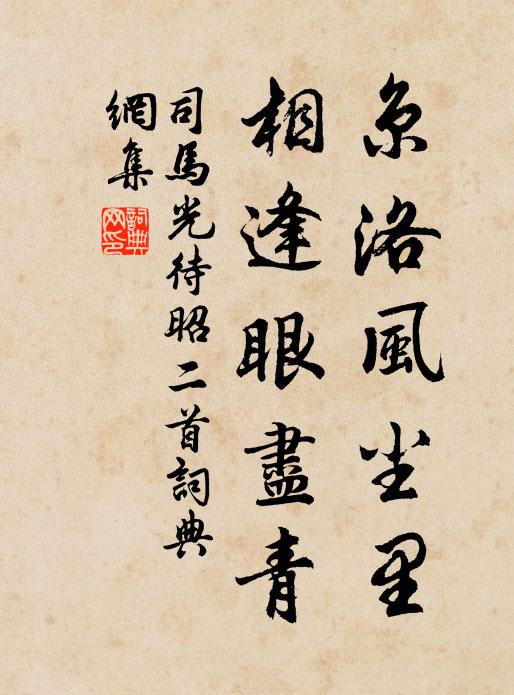 京洛風尘里
相逢眼盡青
司馬光待昭二首詞典
網集
詞典
网印